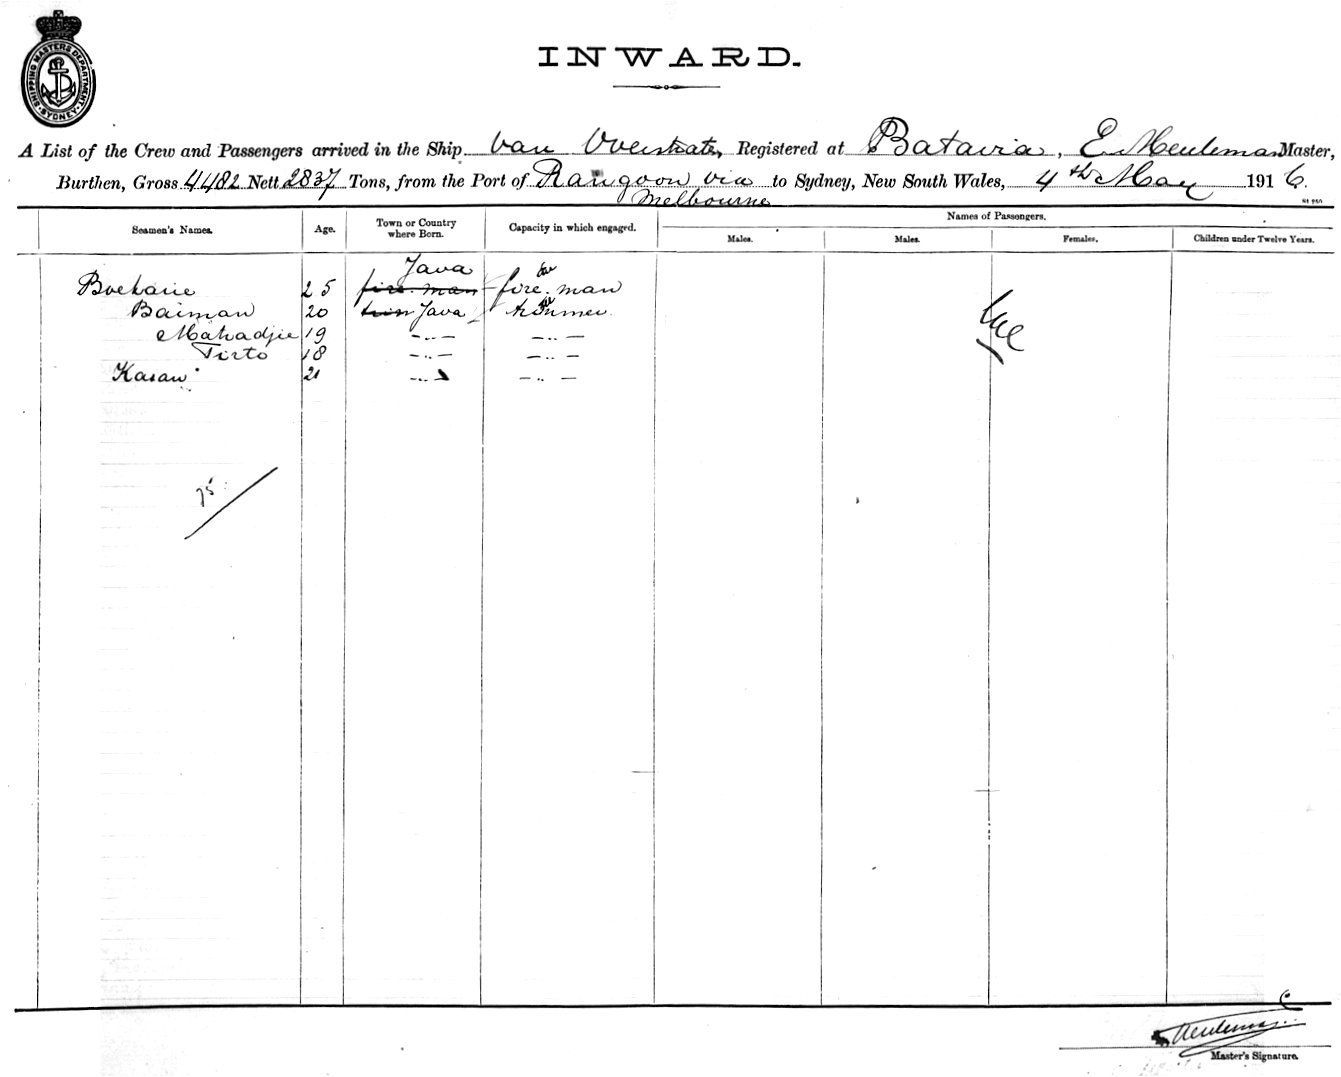 SHIPPING MASTERS DEPARTMENT
SYDNEY
INWARD.
A List of the Crew and Passengers arrived in the Ship Van Overstraten, Registered at Batavia, E Meuleman Master,
Burthen, Gross 4482 Nett 2837 Tons, from the Port of Rangoon via to Sydney, New South Wales, 4th May 1916.
Melbourne
Seamen's Names. Age. Town or Country where Born. Capacity in which engaged. Names of Passengers.
Males. Males. Females. Children under Twelve Years.
Java
Boekarie 25 fire man fire man
Baiman 20 trim Java trimmer
Mahadjie 19 - " - - " -
Tirto 18 - " - - " -
Kasan 21 - " - - " -
75
Meuleman
Master's Signature.